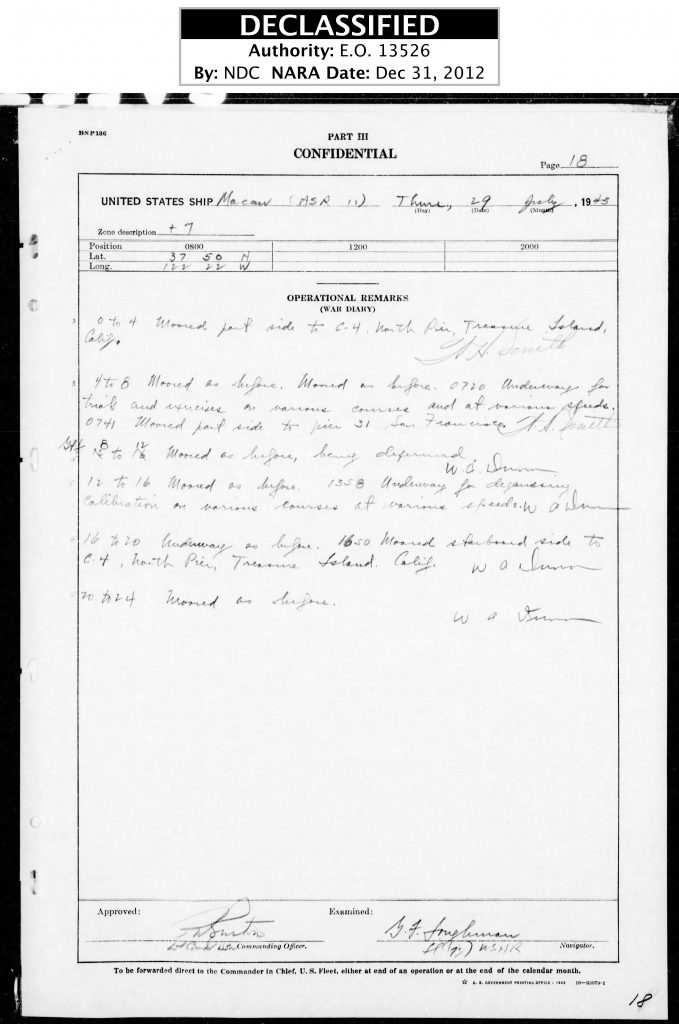 DECLASSIFIED
Authority: E.O. 13526
By: NDC NARA Date: Dec 31, 2012
BNP136
PART III
CONFIDENTIAL
Page 18
UNITED STATES SHIP Macaw (ASR 11) Thurs, 29 July, 1943
(Day) (Date) (Month)
Zone description +7
Position 0800 1200 2000
Lat. 37 50 N
Long. 122 22 W
OPERATIONAL REMARKS
(WAR DIARY)
0 to 4 Moored port side to C-4, North Pier, Treasure Island,
Calif.
W.H. Smith
4 to 8 Moored as before. Moored as before. 0720 Underway for
trials and exercises on various courses and at various speeds.
0741 Moored port side to pier 31 San Francisco. W.H. Smith
8 to 12 Moored as before, being depermed.
W. A. Dunn
12 to 16 Moored as before. 1358 Underway for degaussing
calibration on various courses at various speeds. W A Dunn
16 to 20 Underway as before. 1650 Moored starboard side to
C-4, North Pier, Treasure Island. Calif. W A Dunn
20 to 24 Moored as before.
W A Dunn
Approved: Examined:
PW Burton G. F. Loughman
Lt Comdr USN Commanding Officer. Lt(jg) USNR Navigator.
To be forwarded direct to the Commander in Chief, U. S. Fleet, either at end of an operation or at the end of the calendar month.
☆ U. S. GOVERNMENT PRINTING OFFICE : 1943 16—33079-1
18